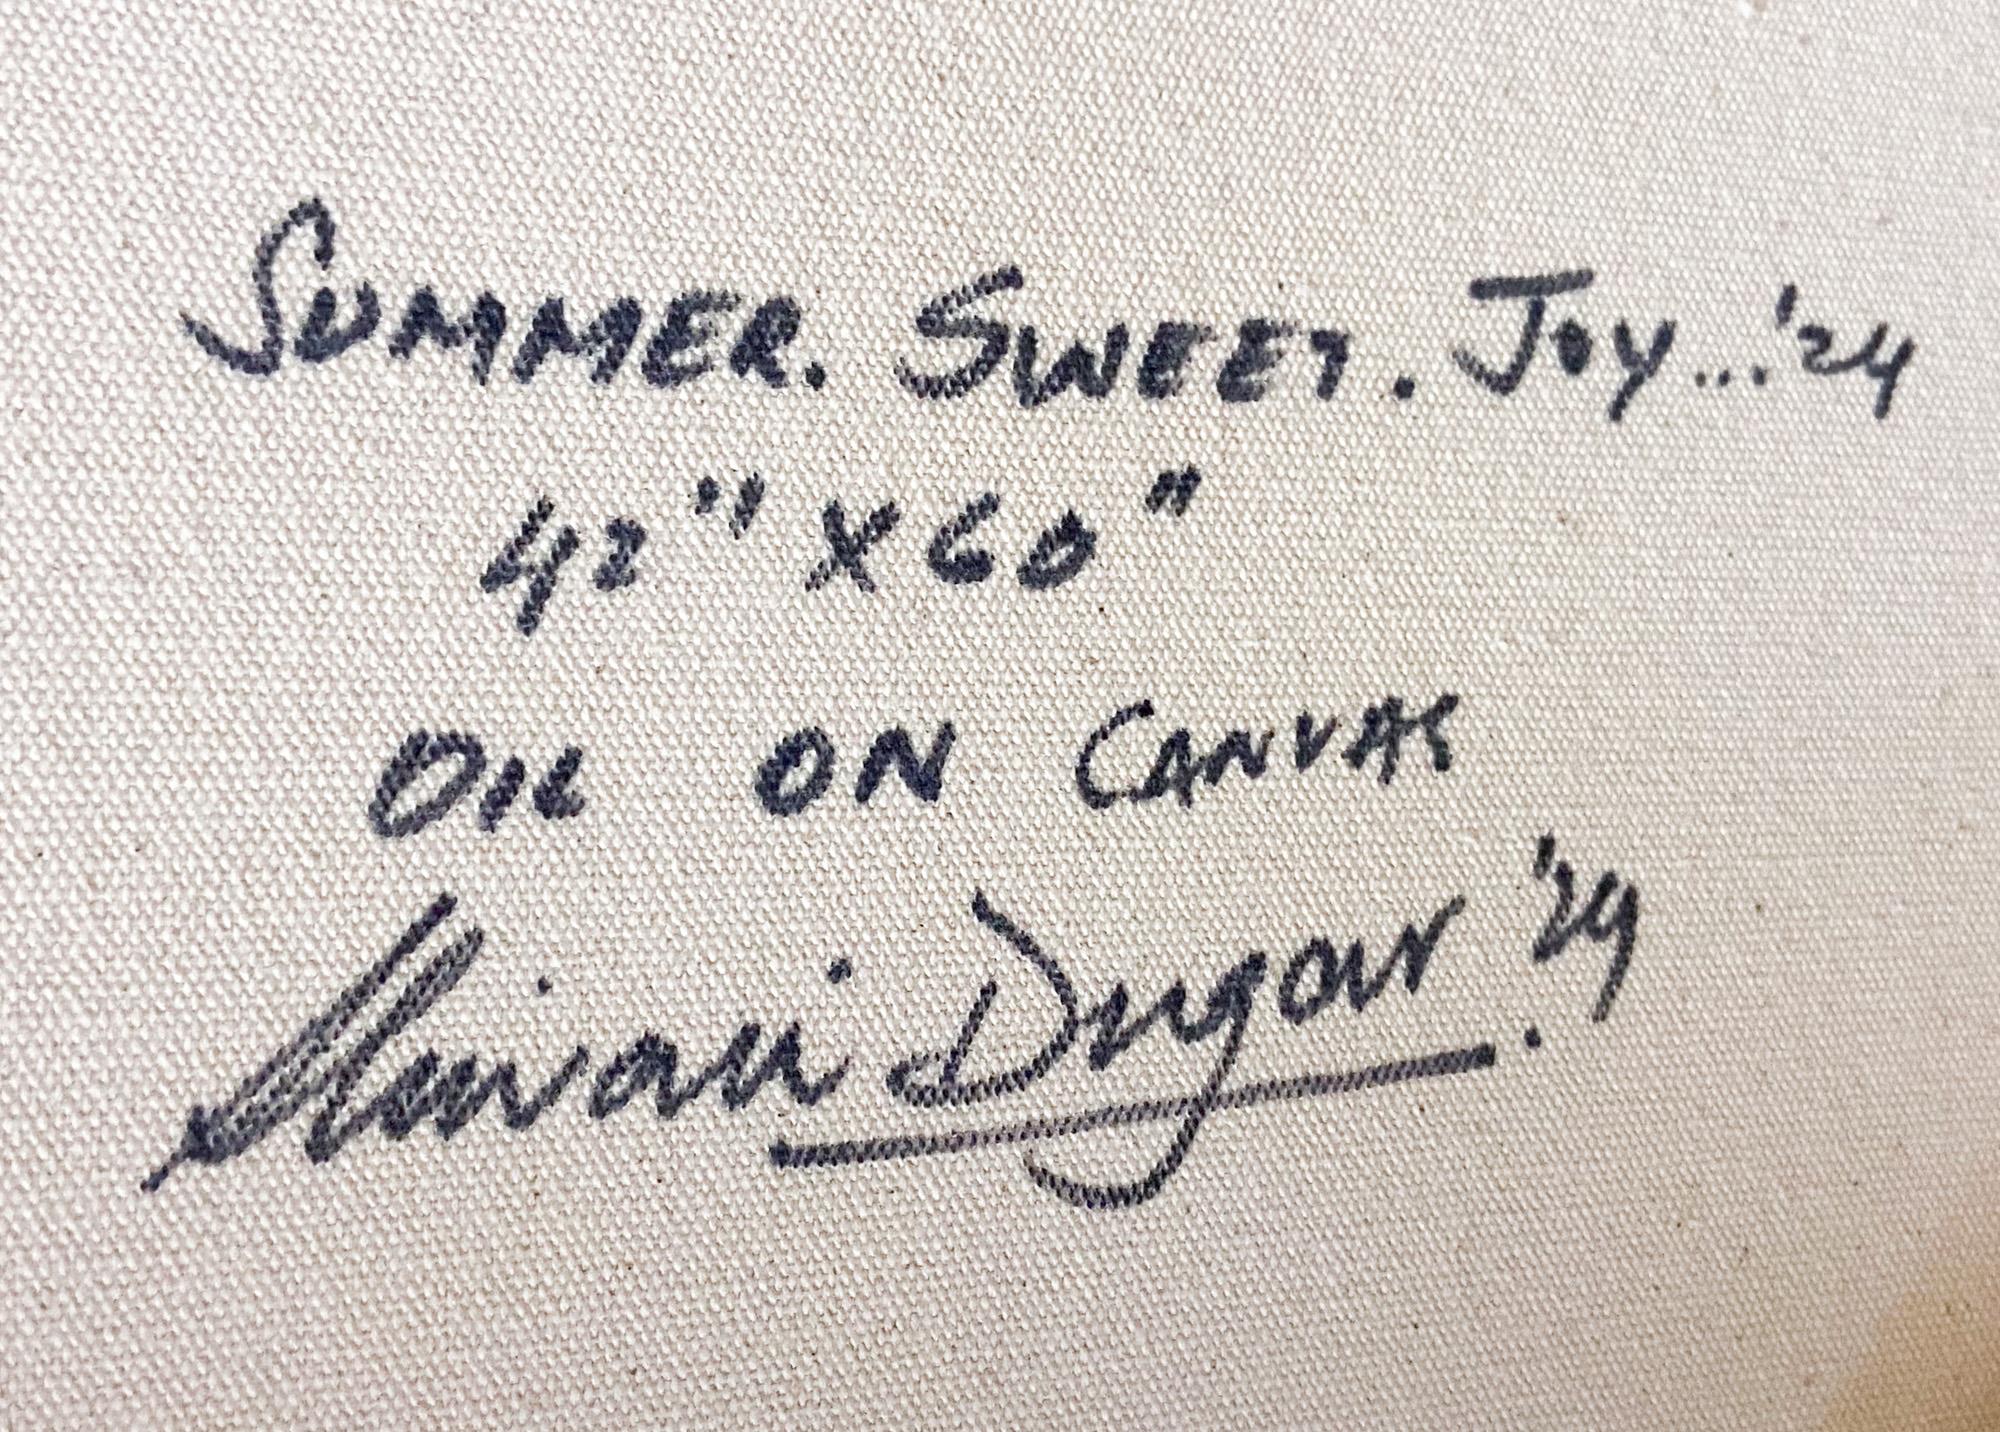 SUMMER. SWEET. JOY...'24
42" X 60"
OIL ON CANVAS
Shivani Dugar '24